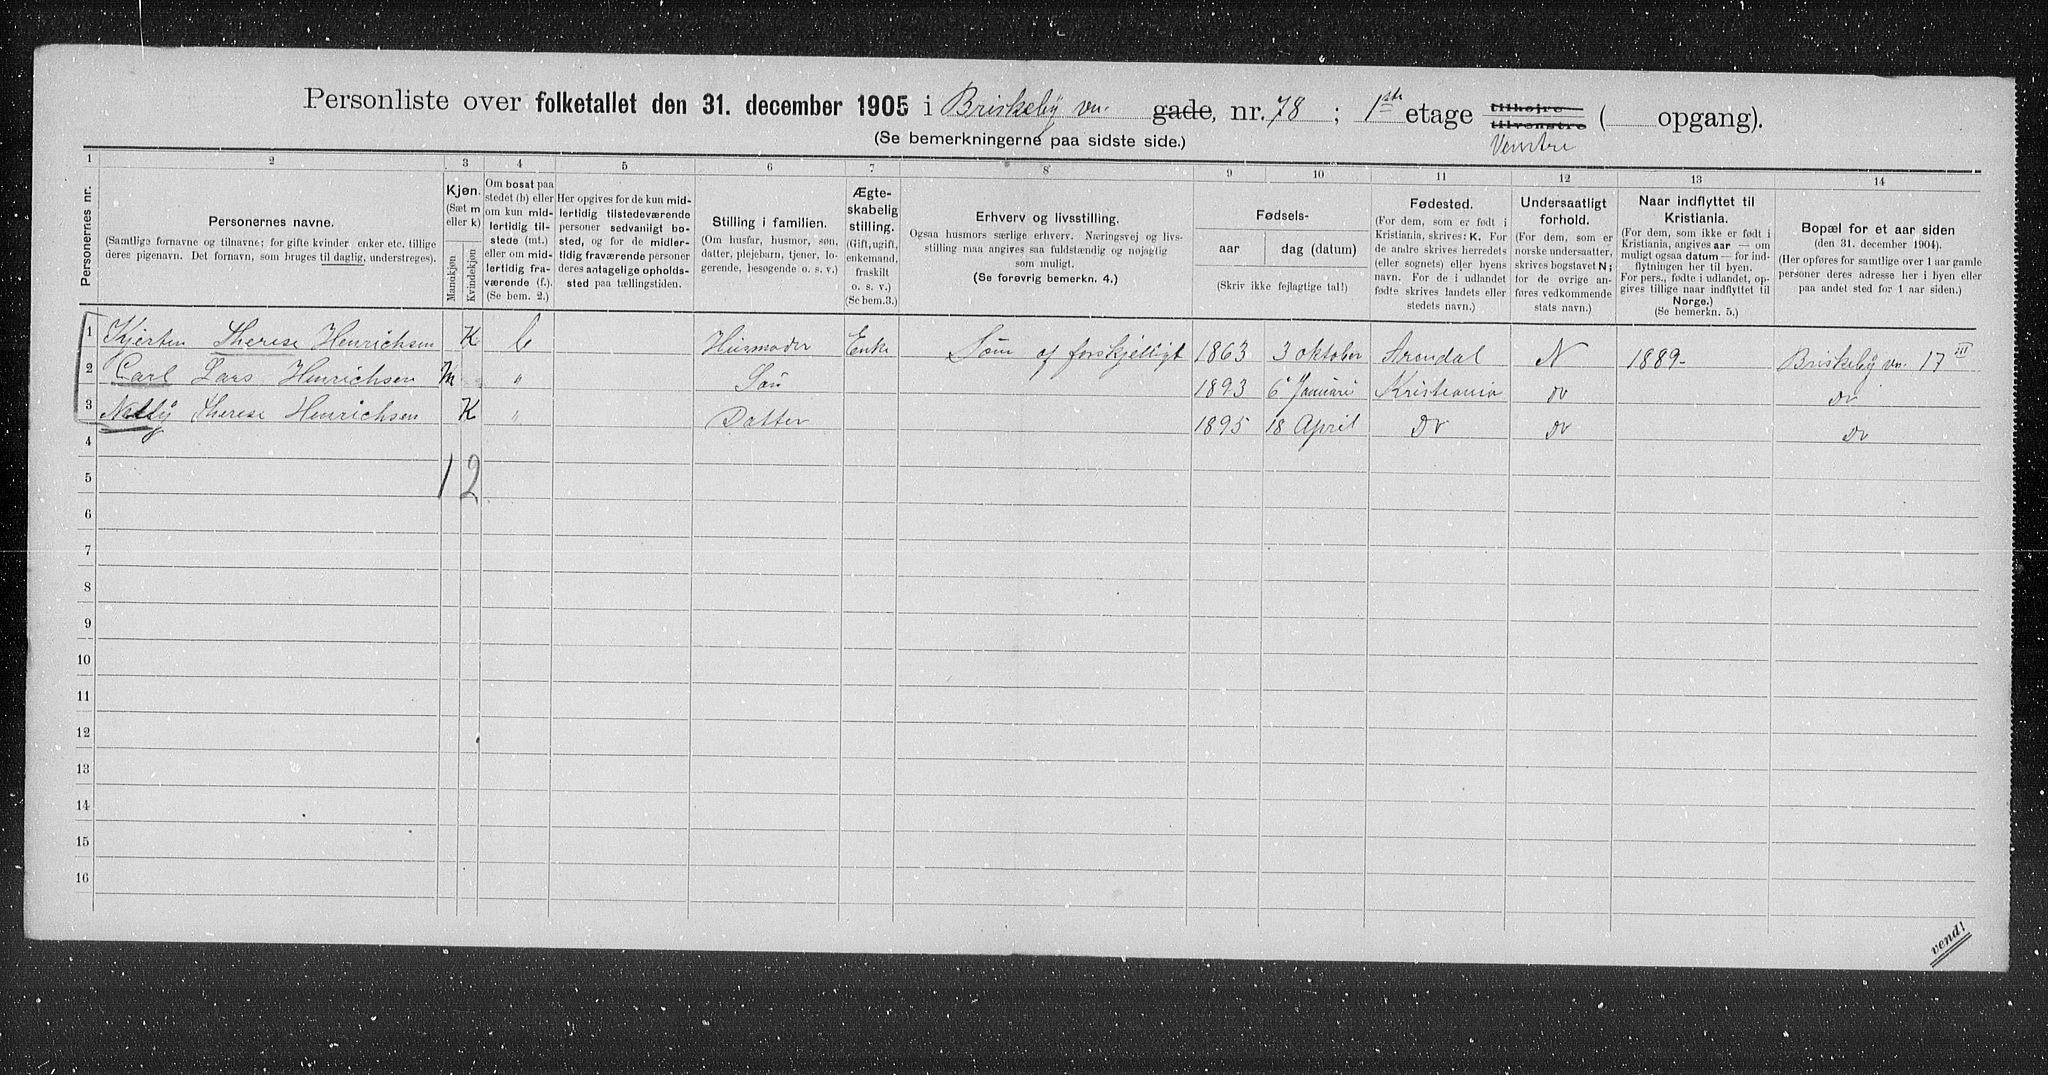 Personliste over folketallet den 31. december 1905 i Briskeby vn. gade, nr. 78 ; 1ste etage tilhøjre tilvenstre ( opgang).
Venstre
(Se bemerkningerne paa sidste side.)
1 2 3 4 5 6 7 8 9 10 11 12 13 14
Personernes nr.
Personernes navne.
(Samtlige fornavne og tilnavne; for gifte kvinder, enker etc. tillige
deres pigenavn. Det fornavn, som bruges til daglig, understreges).
Kjøn.
(Sæt m
eller k)
Mandkjøn
Kvindekjøn
Om bosat paa
stedet (b) eller
om kun mid-
lertidig til-
stede (mt.)
eller om mid-
lertidig fra-
værende (f.).
(Se bem. 2.)
Her opgives for de kun mid-
lertidig tilstedeværende
personer sedvanligt bo-
sted, og for de midler-
tidig fraværende personer
deres antagelige opholds-
sted paa tællingstiden.
Stilling i familien.
(Om husfar, husmor, søn,
datter, plejebarn, tjener, lo-
gerende, besøgende o. s. v.)
Ægte-
skabelig
stilling.
(Gift, ugift,
enkemand,
fraskilt
o. s. v.)
(Se bem.3.)
Erhverv og livsstilling.
Ogsaa husmors særlige erhverv. Næringsvej og livs-
stilling maa angives saa fuldstændig og nøjagtig
som muligt.
(Se forøvrig bemerkn. 4.)
Fødsels-
aar dag (datum)
(Skriv ikke fejlagtige tal!)
Fødested.
(For dem, som er født i
Kristiania, skrives: K. For
de andre skrives herredets
(eller sognets) eller byens
navn. For de i udlandet
fødte skrives landets eller
stedets navn.)
Undersaatligt
forhold.
(For dem, som er
norske undersaatter,
skrives bogstavet N;
for de øvrige an-
føres vedkommende
stats navn.)
Naar indflyttet til
Kristiania.
(For dem, som ikke er født i
Kristiania, angives aar — om
muligt ogsaa datum — for ind-
flytningen her til byen.
For pers., fødte i udlandet, op-
gives tillige naar indflyttet til
Norge.)
(Se bemerkn. 5.)
Bopæl for et aar siden
(den 31. december 1904).
(Her opføres for samtlige over 1 aar gamle
personer deres adresse her i byen eller
paa andet sted for 1 aar siden.)
1 Kjersten Therese Henrichsen K b Husmoder Enke Søm af forskjelligt 1863 3 oktober Arendal N 1889- Briskeby vn. 17 III
2 Carl Lars Henrichsen M " Søn 1893 6 Januari Kristiania do do
3 Nally Therese Henrichsen K " Datter 1895 18 April Do do Do
4
5 1 2
6
7
8
9
10
11
12
13
14
15
16
vend!